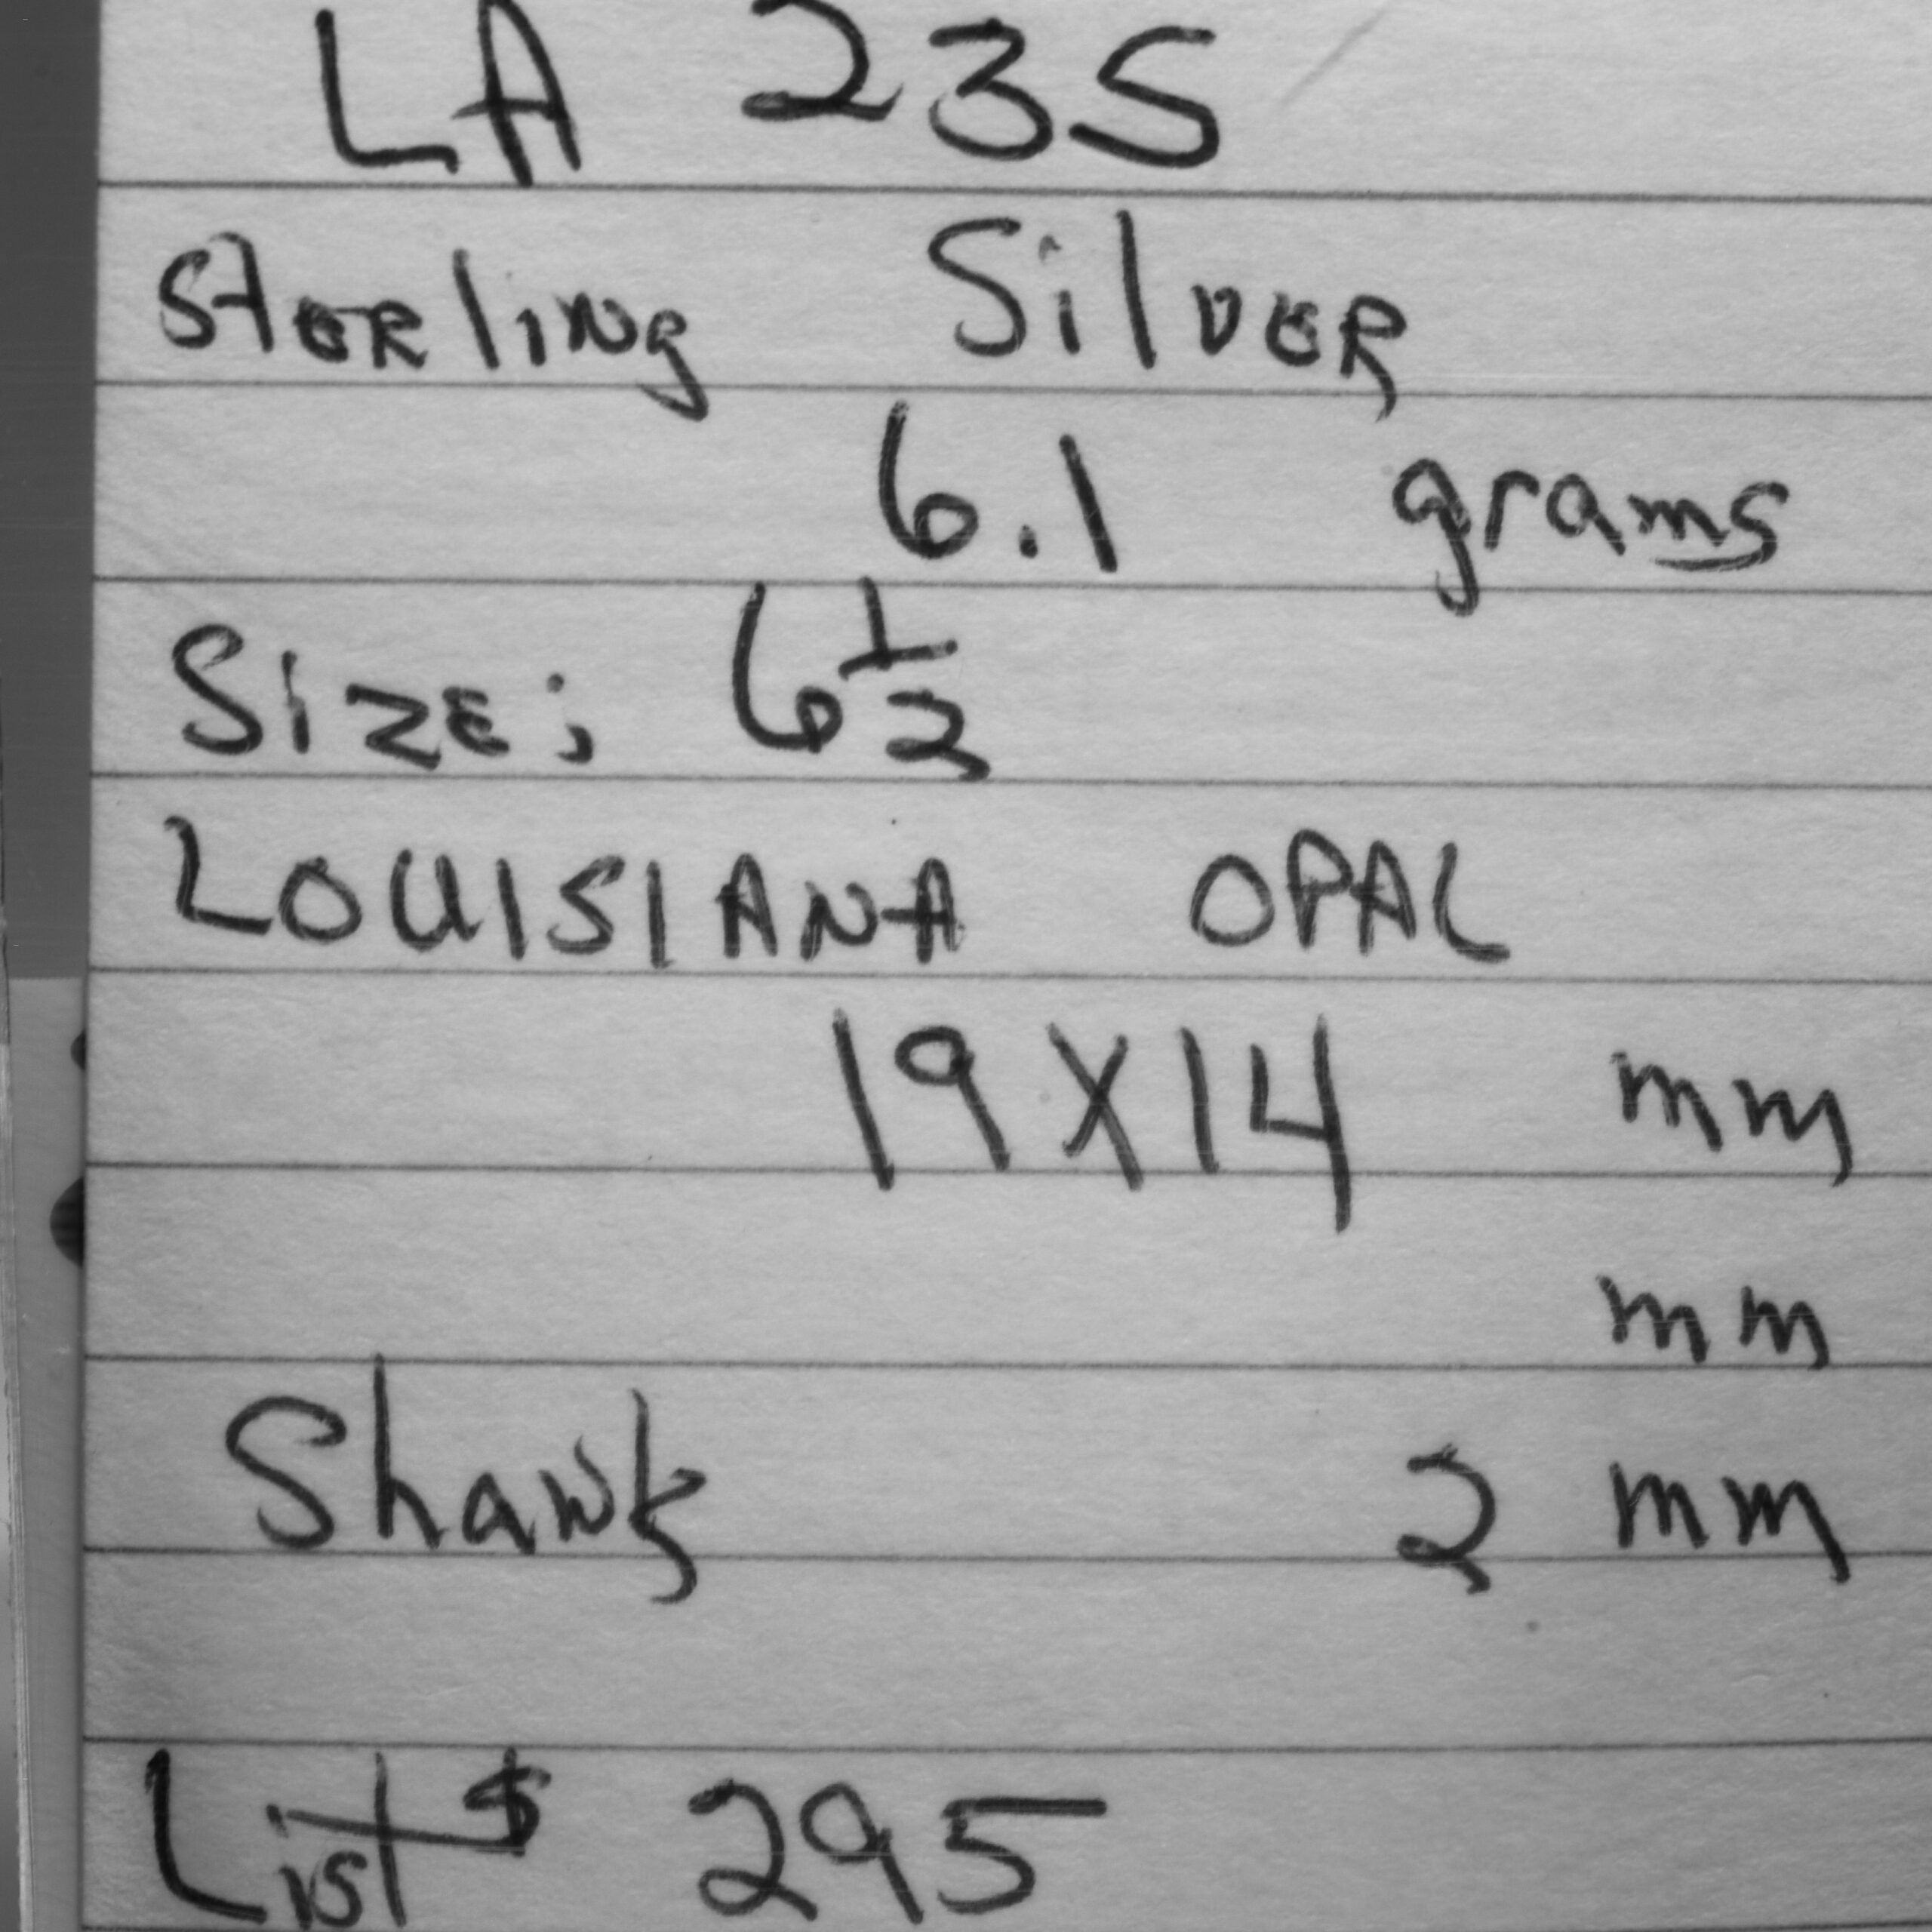 LA 235
Sterling Silver
6.1 grams
Size; 6 1/2
LOUISIANA OPAL
19X14 mm
mm
Shank 2 mm
List $ 295